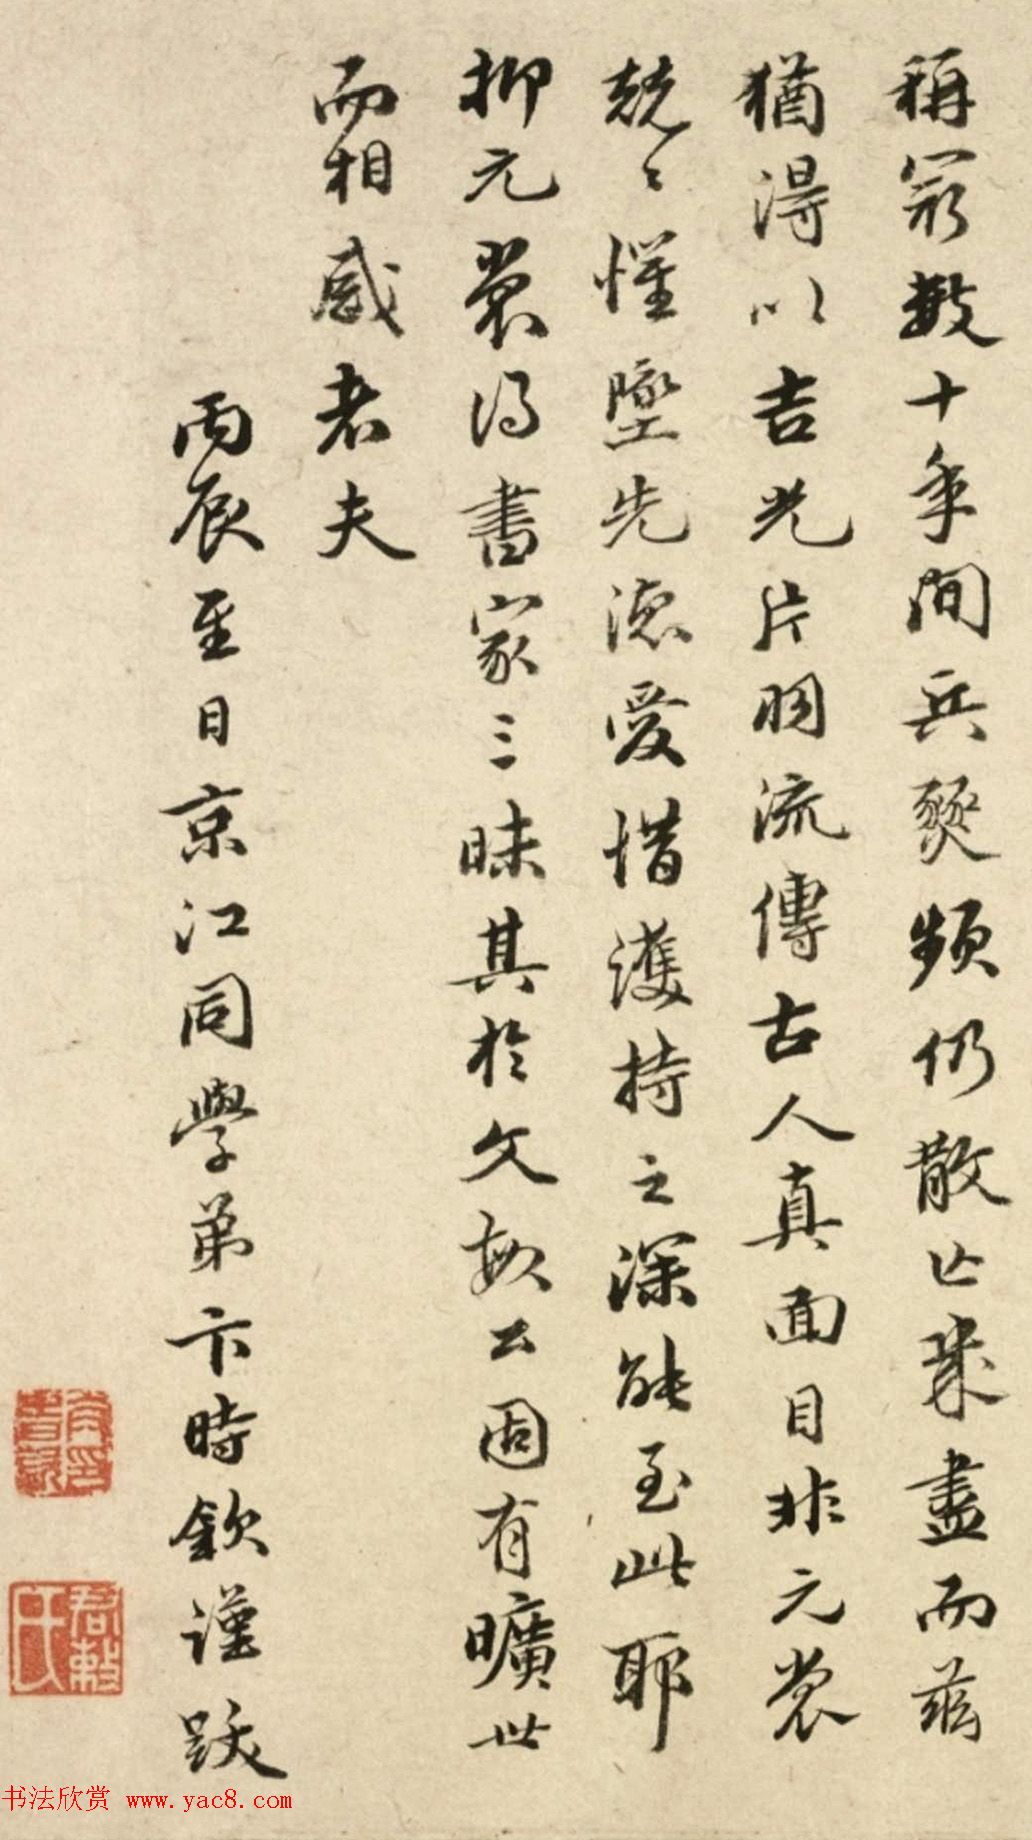 稱最數十年間兵燹頻仍散亡幾盡而茲
猶得以吉光片羽流傳古人真面目非元裳
兢兢懼墜先德愛惜護持之深能至此耶
抑元裳得書家三昧其於文敏公固有曠世
而相感者夫
丙辰至日京江同學弟卞時欽謹跋
書法欣赏 www.yac8.com